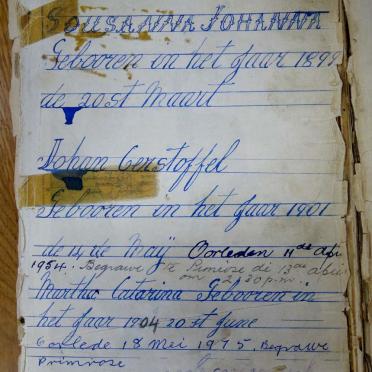 Sousanna Johanna
Geborren in het Jaar 1899
de 20st Maart
Johan Cerstoffel
Geborren in het Jaar 1901
de 14 de Maÿ Oorleden 11de Apr
1954. Begrawe te Primrose di 13de April
om 2.30 p.m.
Martha Catarina Geborren in
het Jaar 1904 20 st June
Oorlede 18 Mei 1975. Begrawe
Primrose